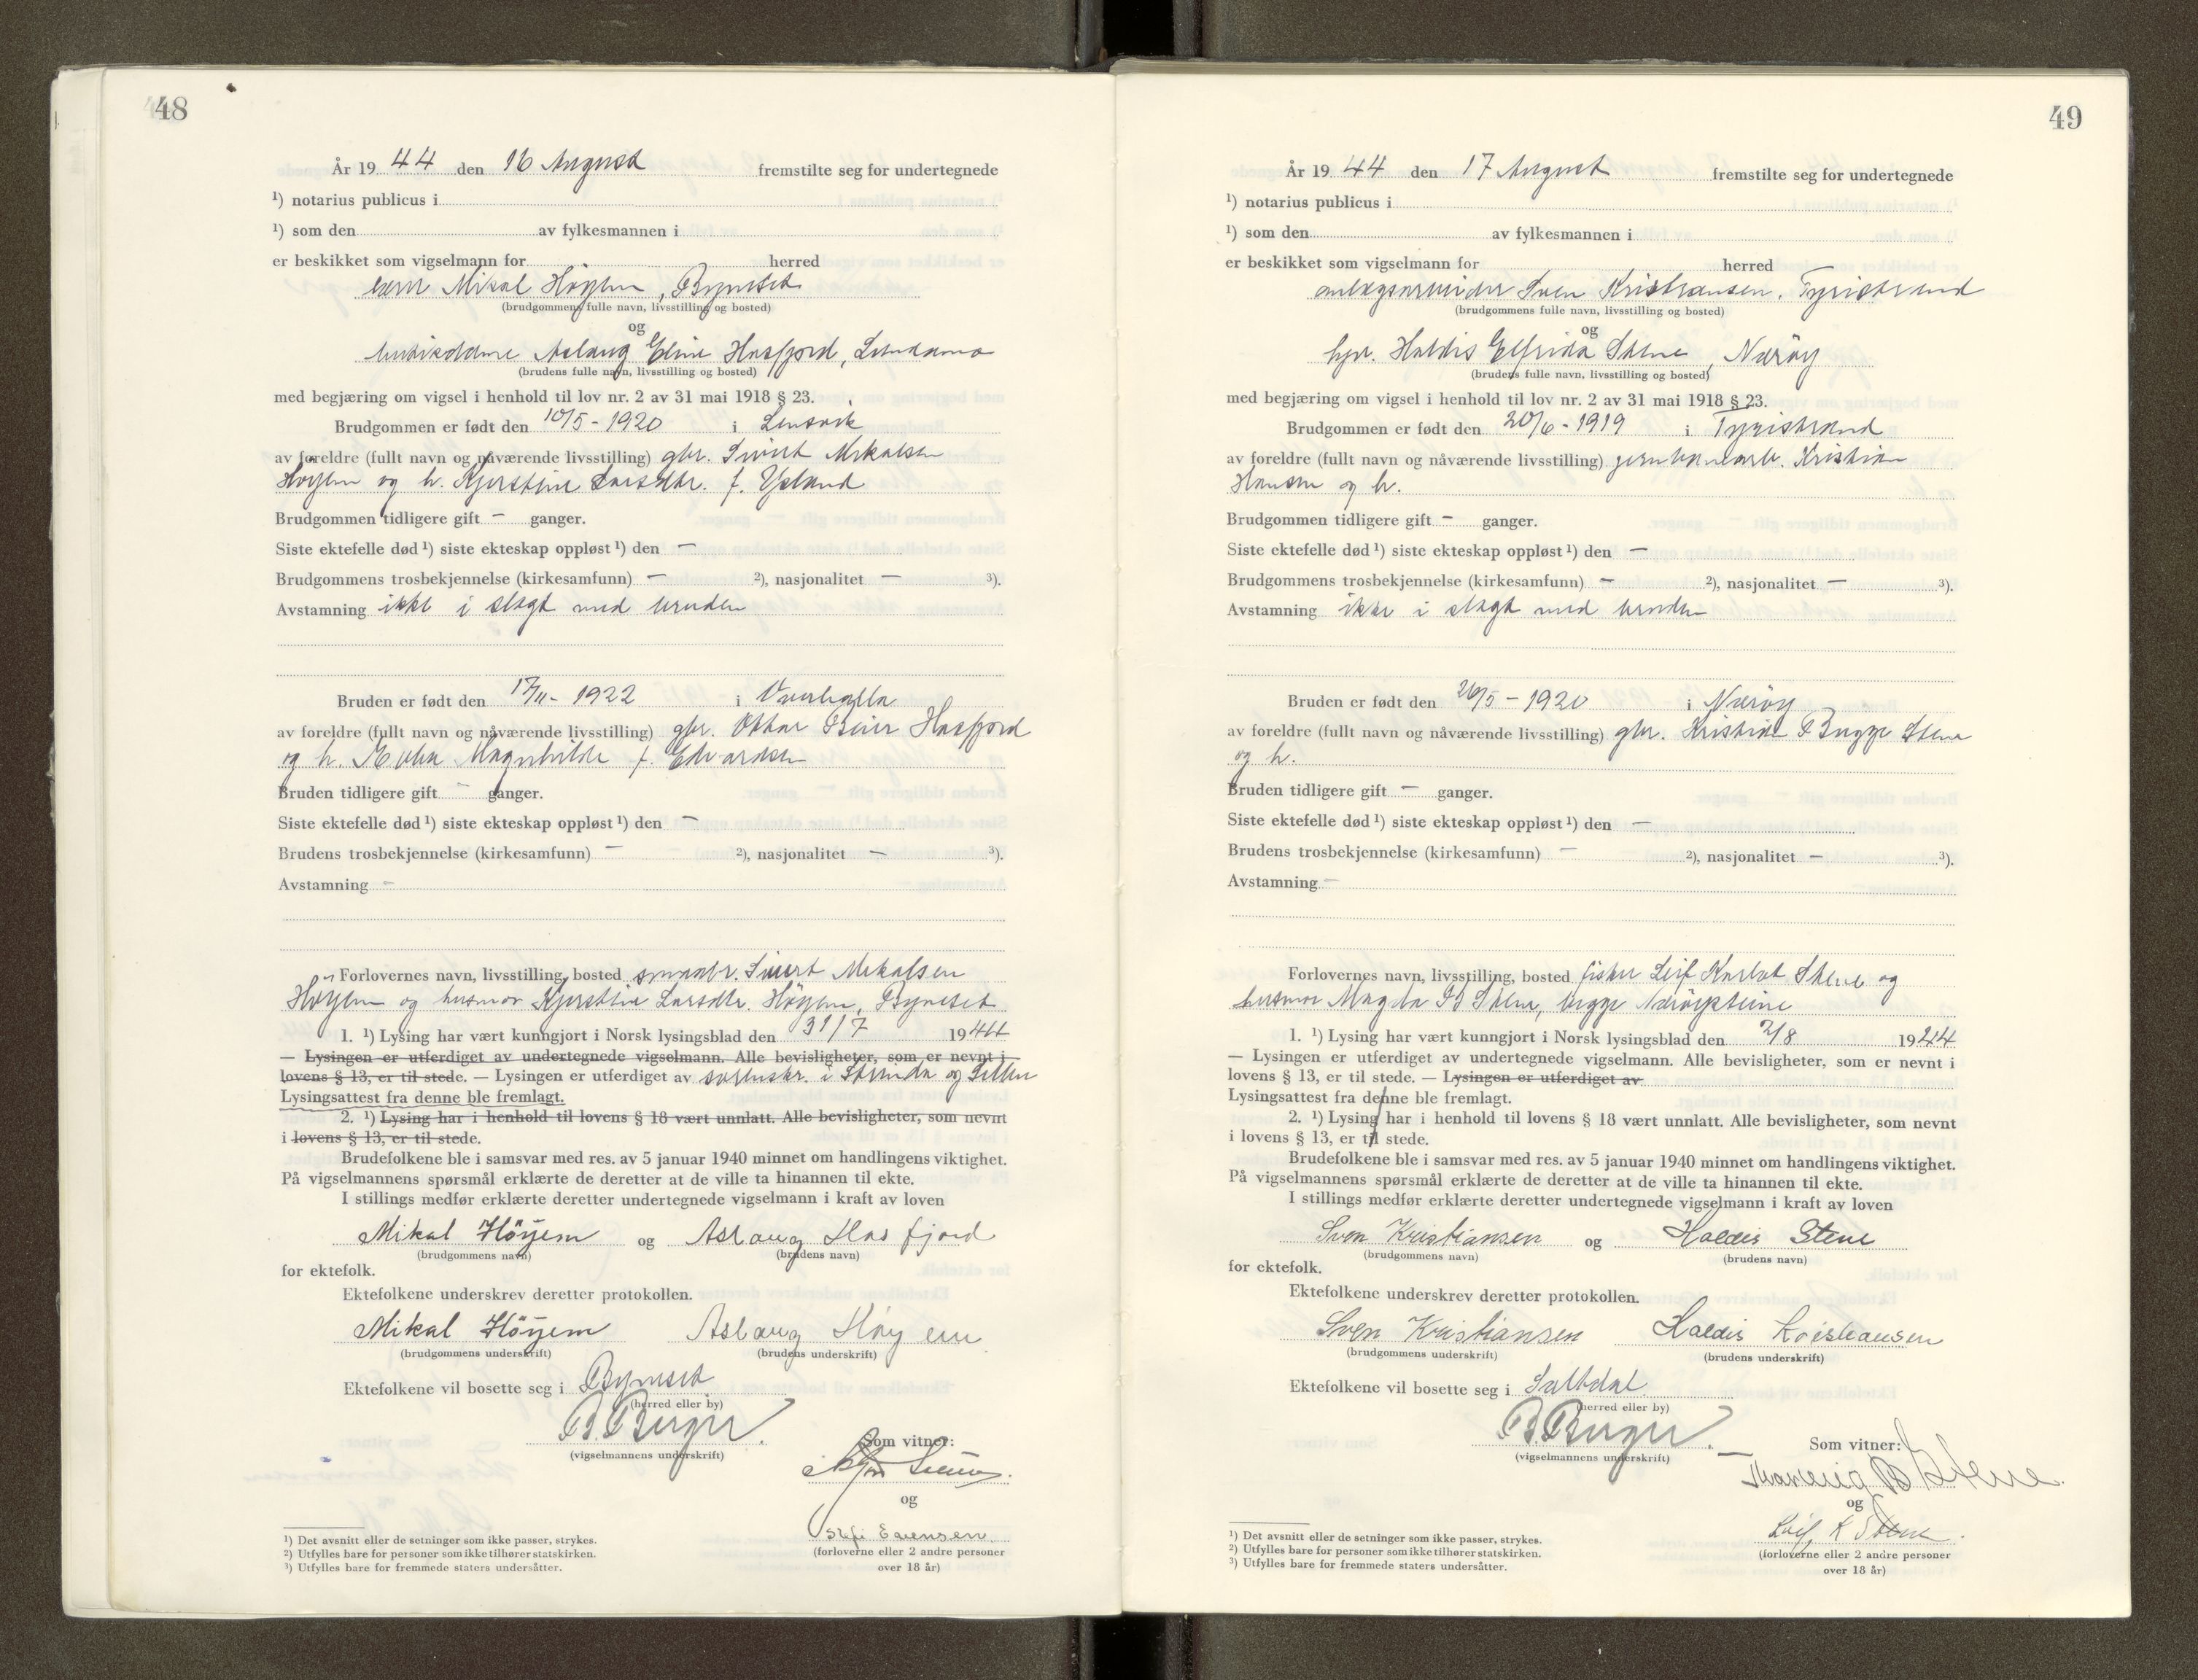 48
År 19 44 den 16 August fremstilte seg for undertegnede
¹) notarius publicus i
¹) som den av fylkesmannen i
er beskikket som vigselmann for herred
Mikal Höyem, Byneset
(brudgommens fulle navn, livsstilling og bosted)
og
butikkdame Aslaug Eline Hasfjord,
(brudens fulle navn, livsstilling og bosted)
med begjæring om vigsel i henhold til lov nr. 2 av 31 mai 1918 § 23.
Brudgommen er født den 10/5 - 1920 i Lensvik
av foreldre (fullt navn og nåværende livsstilling) gbr. Sivert Mikalsen
Höyem og h. Kjerstine Larsdtr. f.
Brudgommen tidligere gift — ganger.
Siste ektefelle død ¹) siste ekteskap oppløst ¹) den —
Brudgommens trosbekjennelse (kirkesamfunn) — ²), nasjonalitet — ³).
Avstamning ikke i slegt med bruden
Bruden er født den 17/11 - 1922 i Overhalla
av foreldre (fullt navn og nåværende livsstilling) gbr. Ottar Beier Hasfjord
og h. Magnhilde f. Edvardsen
Bruden tidligere gift — ganger.
Siste ektefelle død ¹) siste ekteskap oppløst ¹) den —
Brudens trosbekjennelse (kirkesamfunn) — ²), nasjonalitet — ³).
Avstamning —
Forlovernes navn, livsstilling, bosted småbr. Sivert Mikalsen
Höyem og husmor Kjerstine Larsdtr. Höyem, Byneset
1. ¹) Lysing har vært kunngjort i Norsk lysingsblad den 31/7 1944
— Lysingen er utferdiget av undertegnede vigselmann. Alle bevisligheter, som er nevnt i
lovens § 13, er til stede. — Lysingen er utferdiget av sorenskr. i Strinda og Selbu
Lysingsattest fra denne ble fremlagt.
2. ¹) Lysing har i henhold til lovens § 18 vært unnlatt. Alle bevisligheter, som nevnt
i lovens § 13, er til stede.
Brudefolkene ble i samsvar med res. av 5 januar 1940 minnet om handlingens viktighet.
På vigselmannens spørsmål erklærte de deretter at de ville ta hinannen til ekte.
I stillings medfør erklærte deretter undertegnede vigselmann i kraft av loven
Mikal Höyem og Aslaug Hasfjord
(brudgommens navn) (brudens navn)
for ektefolk.
Ektefolkene underskrev deretter protokollen.
Mikal Höyem Aslaug Höyem
(brudgommens underskrift) (brudens underskrift)
Ektefolkene vil bosette seg i Byneset
(herred eller by)
B. Berger
(vigselmannens underskrift)
Som vitner:
og
Sørensen
(forloverne eller 2 andre personer
over 18 år)
¹) Det avsnitt eller de setninger som ikke passer, strykes.
²) Utfylles bare for personer som ikke tilhører statskirken.
³) Utfylles bare for fremmede staters undersåtter.
49
År 19 44 den 17 August fremstilte seg for undertegnede
¹) notarius publicus i
¹) som den av fylkesmannen i
er beskikket som vigselmann for herred
anlegsarbeider Sven Kristiansen, Tyristrand
(brudgommens fulle navn, livsstilling og bosted)
og
Haldis Elfrida Stene, Nærøy
(brudens fulle navn, livsstilling og bosted)
med begjæring om vigsel i henhold til lov nr. 2 av 31 mai 1918 § 23.
Brudgommen er født den 20/6 - 1919 i Tyristrand
av foreldre (fullt navn og nåværende livsstilling) jernbanearb. Kristian
Hansen og h.
Brudgommen tidligere gift — ganger.
Siste ektefelle død ¹) siste ekteskap oppløst ¹) den —
Brudgommens trosbekjennelse (kirkesamfunn) — ²), nasjonalitet — ³).
Avstamning ikke i slegt med bruden
Bruden er født den 26/5 - 1920 i Nærøy
av foreldre (fullt navn og nåværende livsstilling) gbr. Kristian Bugge Stene
og h.
Bruden tidligere gift — ganger.
Siste ektefelle død ¹) siste ekteskap oppløst ¹) den —
Brudens trosbekjennelse (kirkesamfunn) — ²), nasjonalitet — ³).
Avstamning —
Forlovernes navn, livsstilling, bosted fisker Leif Karlot Stene og
husmor Magda B Stene, begge Nærøysteine
1. ¹) Lysing har vært kunngjort i Norsk lysingsblad den 2/8 1944
— Lysingen er utferdiget av undertegnede vigselmann. Alle bevisligheter, som er nevnt i
lovens § 13, er til stede. — Lysingen er utferdiget av
Lysingsattest fra denne ble fremlagt.
2. ¹) Lysing har i henhold til lovens § 18 vært unnlatt. Alle bevisligheter, som nevnt
i lovens § 13, er til stede.
Brudefolkene ble i samsvar med res. av 5 januar 1940 minnet om handlingens viktighet.
På vigselmannens spørsmål erklærte de deretter at de ville ta hinannen til ekte.
I stillings medfør erklærte deretter undertegnede vigselmann i kraft av loven
Sven Kristiansen og Haldis Stene
(brudgommens navn) (brudens navn)
for ektefolk.
Ektefolkene underskrev deretter protokollen.
Sven Kristiansen Haldis Kristiansen
(brudgommens underskrift) (brudens underskrift)
Ektefolkene vil bosette seg i Saltdal
(herred eller by)
B Berger
(vigselmannens underskrift)
Som vitner:
B Stene
og
Leif K Stene
(forloverne eller 2 andre personer
over 18 år)
¹) Det avsnitt eller de setninger som ikke passer, strykes.
²) Utfylles bare for personer som ikke tilhører statskirken.
³) Utfylles bare for fremmede staters undersåtter.